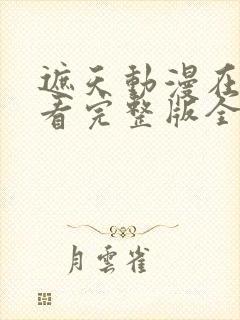 遮天動漫在
看完整版全
月雲雀